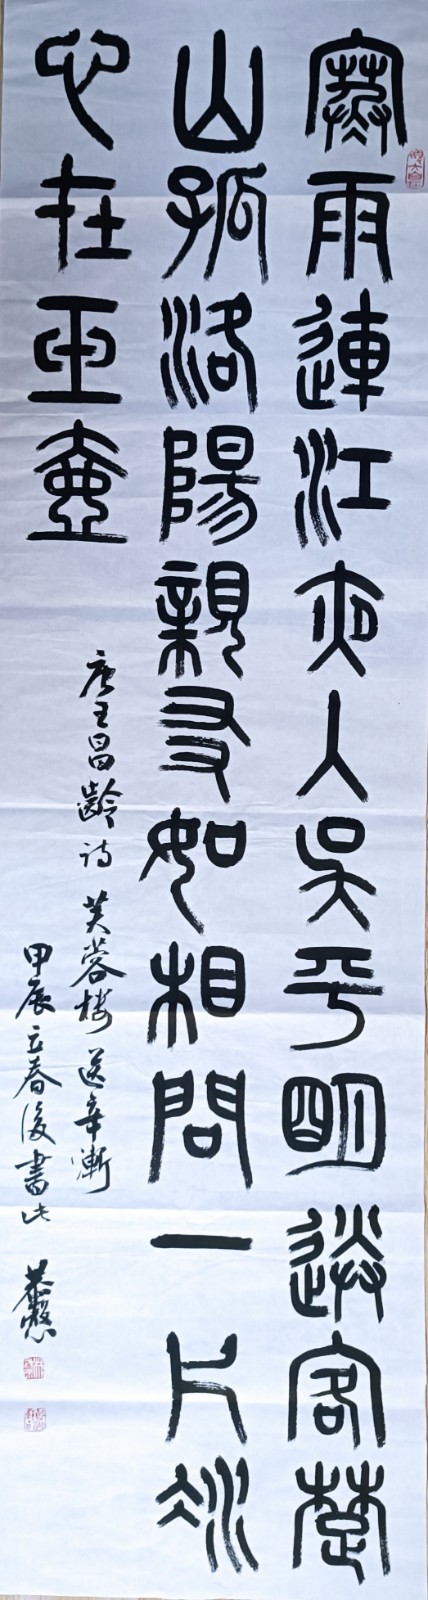 寒雨連江夜入吳平明送客楚
山孤洛陽親友如相問一片冰
心在玉壺
唐王昌齡詩 芙蓉樓送辛漸
甲辰立春後書此